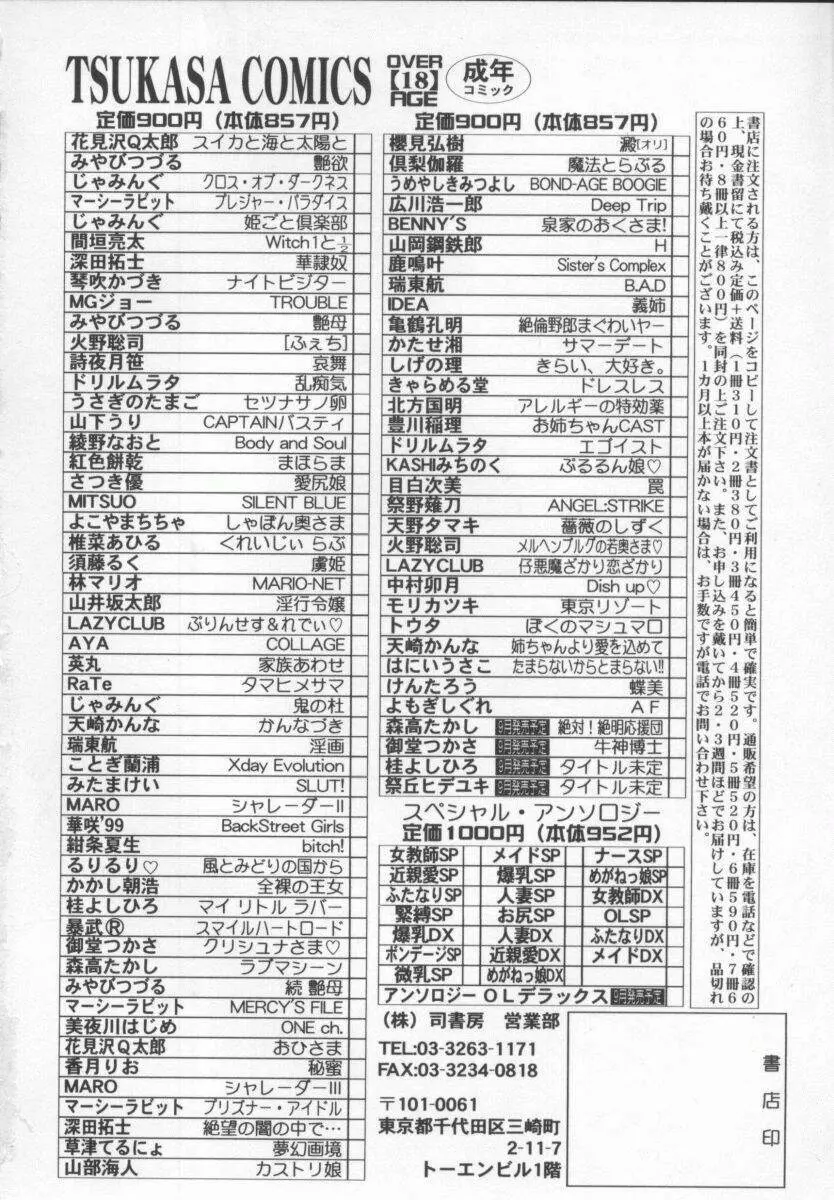 TSUKASA COMICS
OVER
【18】
AGE
成年
コミック
定価900円（本体857円）
花見沢Q太郎 スイカと海と太陽と
みやびつづる 艶欲
じゃみんぐ クロス・オブ・ダークネス
マーシーラビット プレジャー・パラダイス
じゃみんぐ 姫ごと倶楽部
間垣亮太 Witch1と½
深田拓士 華隷奴
琴吹かづき ナイトビジター
MGジョー TROUBLE
みやびつづる 艶母
火野聡司 [ふぇち]
詩夜月笹 哀舞
ドリルムラタ 乱痴気
うさぎのたまご セツナサノ卵
山下うり CAPTAINバスティ
綾野なおと Body and Soul
紅色餅乾 まほらま
さつき優 愛尻娘
MITSUO SILENT BLUE
よこやまちちゃ しゃぼん奥さま
椎菜あひる くれいじぃ らぶ
須藤るく 虜姫
林マリオ MARIO-NET
山井坂太郎 淫行令嬢
LAZYCLUB ぷりんせす&れでぃ♡
AYA COLLAGE
英丸 家族あわせ
RaTe タマヒメサマ
じゃみんぐ 鬼の杜
天崎かんな かんなづき
瑞東航 淫画
ことぎ蘭浦 Xday Evolution
みたまけい SLUT!
MARO シャレーダーII
華咲'99 BackStreet Girls
紺条夏生 bitch!
るりるり♡ 風とみどりの国から
かかし朝浩 全裸の王女
桂よしひろ マイ リトル ラバー
暴武Ⓡ スマイルハートロード
御堂つかさ クリシュナさま♡
森高たかし ラブマシーン
みやびつづる 続 艶母
マーシーラビット MERCY'S FILE
美夜川はじめ ONE ch.
花見沢Q太郎 おひさま
香月りお 秘蜜
MARO シャレーダーIII
マーシーラビット プリズナー・アイドル
深田拓士 絶望の闇の中で…
草津てるにょ 夢幻画境
山部海人 カストリ娘
定価900円（本体857円）
櫻見弘樹 澱[オリ]
倶梨伽羅 魔法とらぶる
うめやしきみつよし BOND-AGE BOOGIE
広川浩一郎 Deep Trip
BENNY'S 泉家のおくさま!
山岡鋼鉄郎 H
鹿鳴叶 Sister's Complex
瑞東航 B.A.D
IDEA 義姉
亀鶴孔明 絶倫野郎まぐわいヤー
かたせ湘 サマーデート
しげの理 きらい、大好き。
きゃらめる堂 ドレスレス
北方国明 アレルギーの特効薬
豊川稲理 お姉ちゃんCAST
ドリルムラタ エゴイスト
KASHIみちのく ぷるるん娘♡
目白次美 罠
祭野薙刀 ANGEL:STRIKE
天野タマキ 薔薇のしずく
火野聡司 メルヘンブルグの若奥さま♡
LAZYCLUB 仔悪魔ざかり恋ざかり
中村卯月 Dish up♡
モリカツキ 東京リゾート
トウタ ぼくのマシュマロ
天崎かんな 姉ちゃんより愛を込めて
はにいうさこ たまらないからとまらない!!
けんたろう 蝶美
よもぎしぐれ AF
森高たかし 9月発売予定 絶対!絶明応援団
御堂つかさ 9月発売予定 牛神博士
桂よしひろ 9月発売予定 タイトル未定
祭丘ヒデユキ 9月発売予定 タイトル未定
スペシャル・アンソロジー
定価1000円（本体952円）
女教師SP メイドSP ナースSP
近親愛SP 爆乳SP めがねっ娘SP
ふたなりSP 人妻SP 女教師DX
緊縛SP お尻SP OLSP
爆乳DX 人妻DX ふたなりDX
ボンデージSP 近親愛DX メイドDX
微乳SP めがねっ娘DX
アンソロジー OLデラックス 9月発売予定
（株）司書房 営業部
TEL:03-3263-1171
FAX:03-3234-0818
〒101-0061
東京都千代田区三崎町
2-11-7
トーエンビル1階
書店印
書店に注文される方は、このページをコピーして注文書としてご利用になると簡単で確実です。通販希望の方は、在庫を電話などで確認の
上、現金書留にて税込み定価＋送料（1冊310円・2冊380円・3冊450円・4冊520円・5冊520円・6冊590円・7冊6
60円・8冊以上一律800円）を同封の上ご注文下さい。また、お申し込みを戴いてから2・3週間ほどでお届けしていますが、品切れ
の場合お待ち戴くことがございます。1カ月以上本が届かない場合は、お手数ですが電話でお問い合わせ下さい。